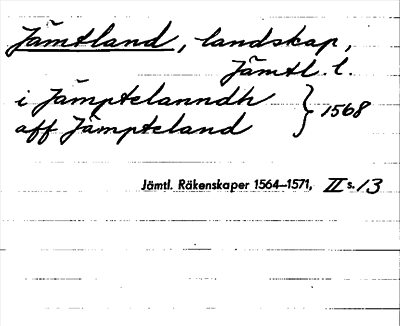 Jämtland, landskap,
Jämtl. l.
i Jämptelanndh
aff Jämpteland } 1568
Jämtl. Räkenskaper 1564–1571, II s. 13